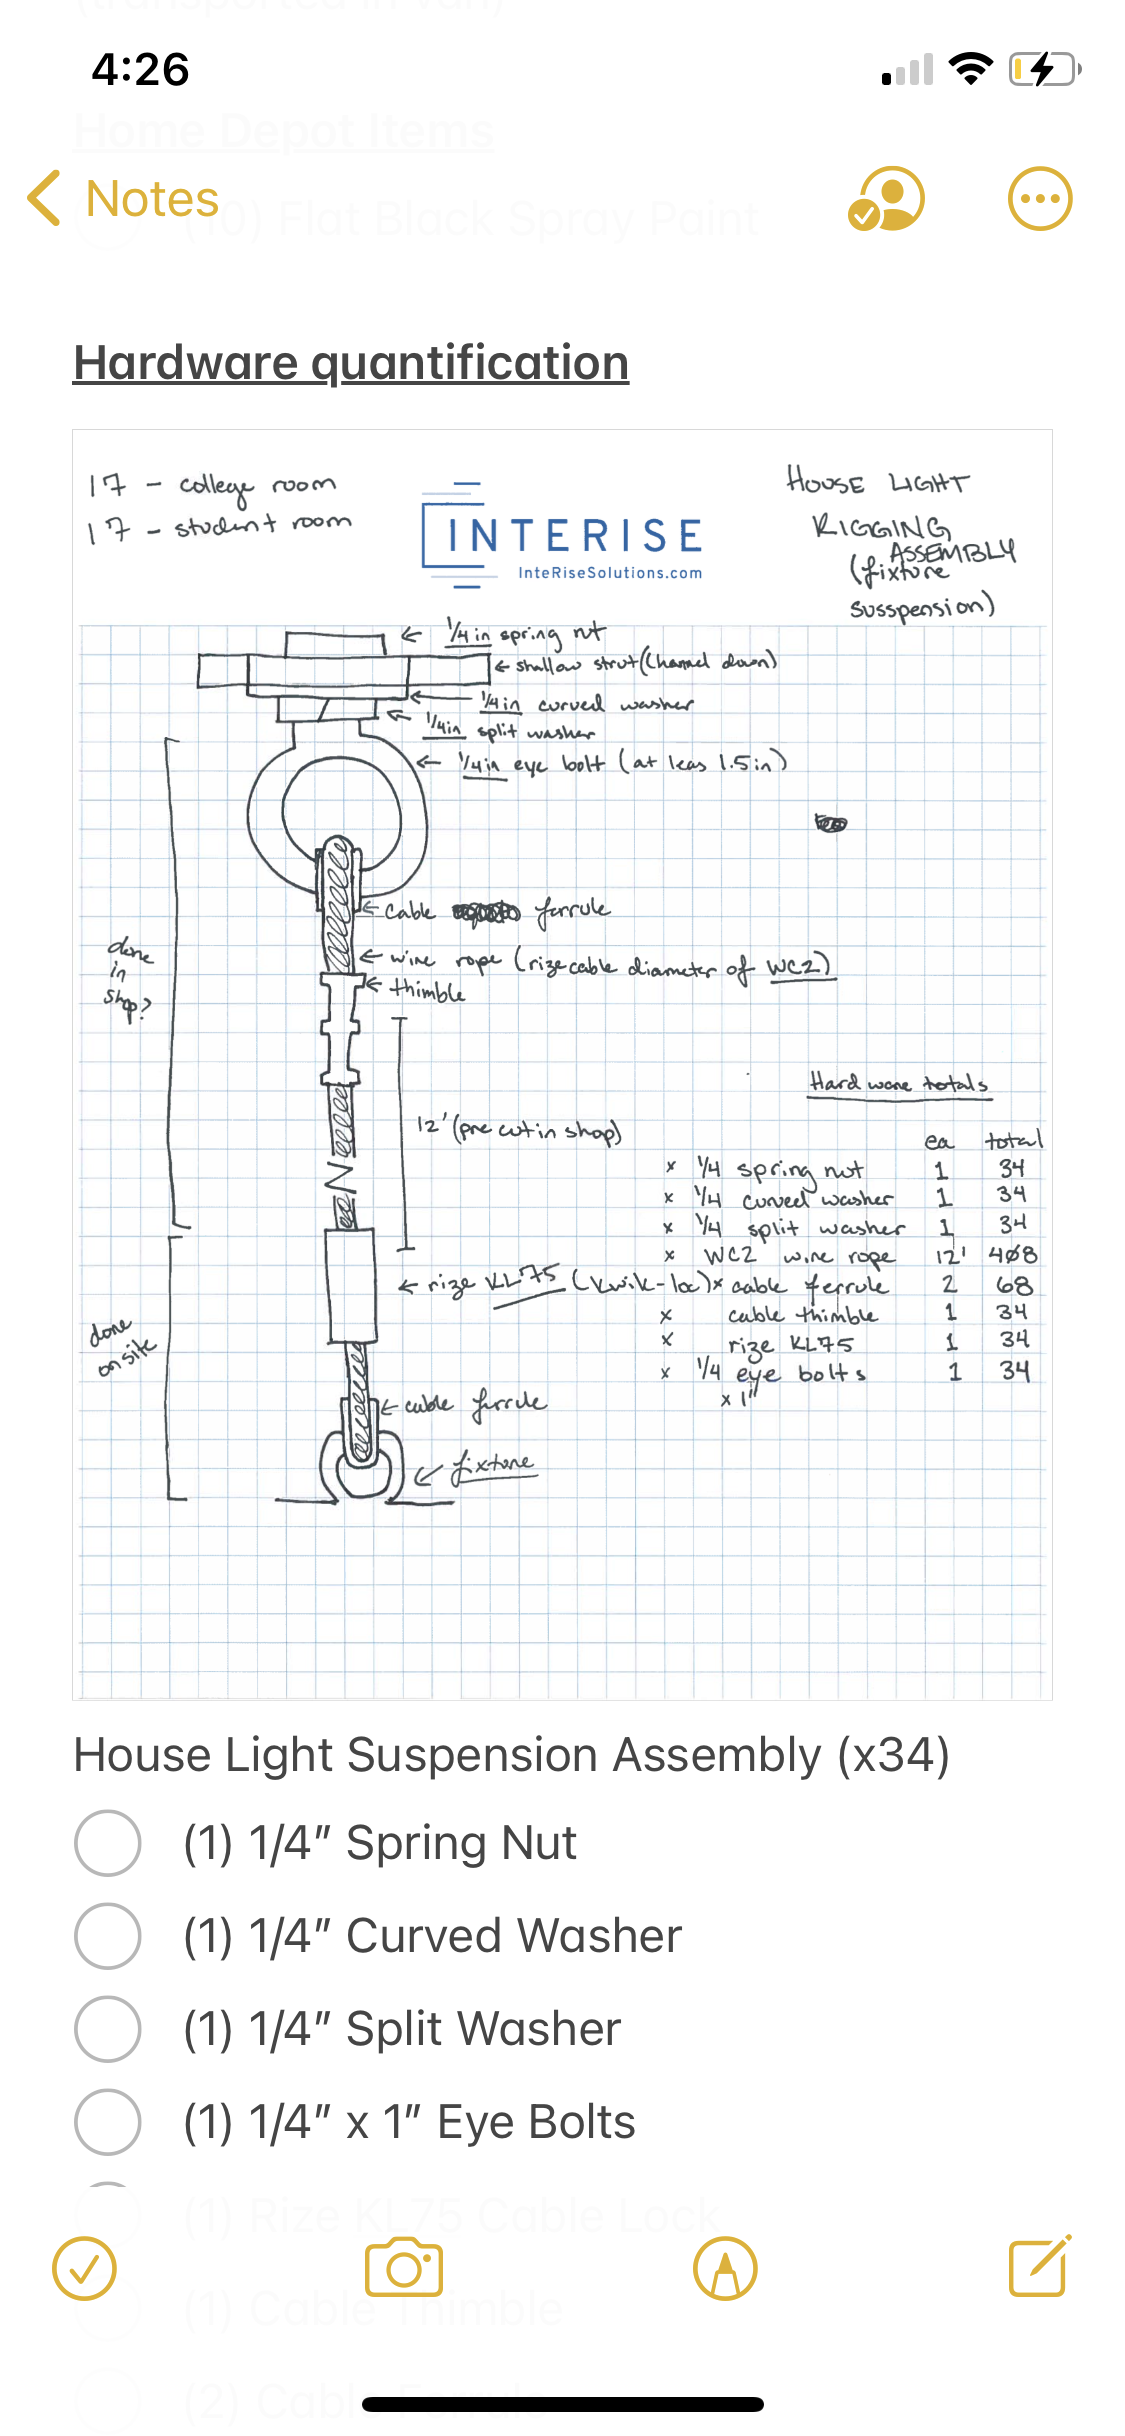 (transported in van)
4:26
Home Depot Items
Notes
(10) Flat Black Spray Paint
Hardware quantification
17 - college room
17 - student room
INTERISE
InteRiseSolutions.com
HOUSE LIGHT
RIGGING
ASSEMBLY
(fixture
susspension)
1/4 in spring nut
shallow strut (channel down)
1/4 in curved washer
1/4 in split washer
1/4 in eye bolt (at leas 1.5in)
cable ferrule
wire rope (rize cable diameter of WC2)
thimble
done
in
shop?
12' (pre cut in shop)
Hardware totals
ea total
x 1/4 spring nut 1 34
x 1/4 curved washer 1 34
x 1/4 split washer 1 34
x WC2 wire rope 12' 408
rize KL75 (kwik-loc)
x cable ferrule 2 68
x cable thimble 1 34
x rize KL75 1 34
x 1/4 eye bolts 1 34
x 1"
done
on site
cable ferrule
fixture
House Light Suspension Assembly (x34)
(1) 1/4" Spring Nut
(1) 1/4" Curved Washer
(1) 1/4" Split Washer
(1) 1/4" x 1" Eye Bolts
(1) Rize KL75 Cable Lock
(1) Cable Thimble
(2) Cable Ferrule